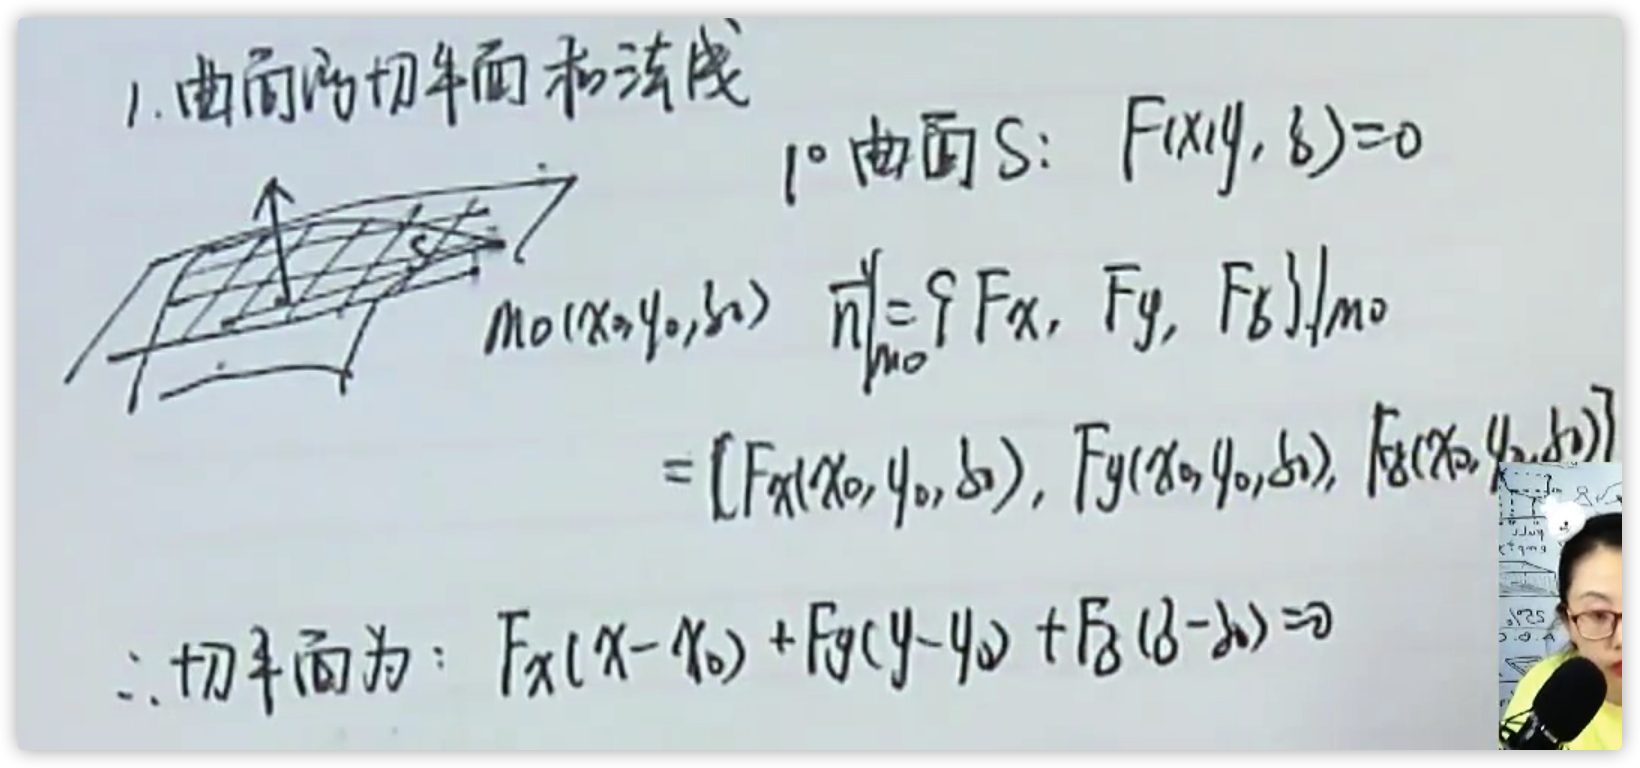 1. 曲面的切平面和法线
1° 曲面S: F(x,y,z)=0
S
M0(x0,y0,z0) n⃗|M0={Fx, Fy, Fz}|M0
={Fx(x0,y0,z0), Fy(x0,y0,z0), Fz(x0,y0,z0)}
∴切平面为: Fx(x-x0)+Fy(y-y0)+Fz(z-z0)=0